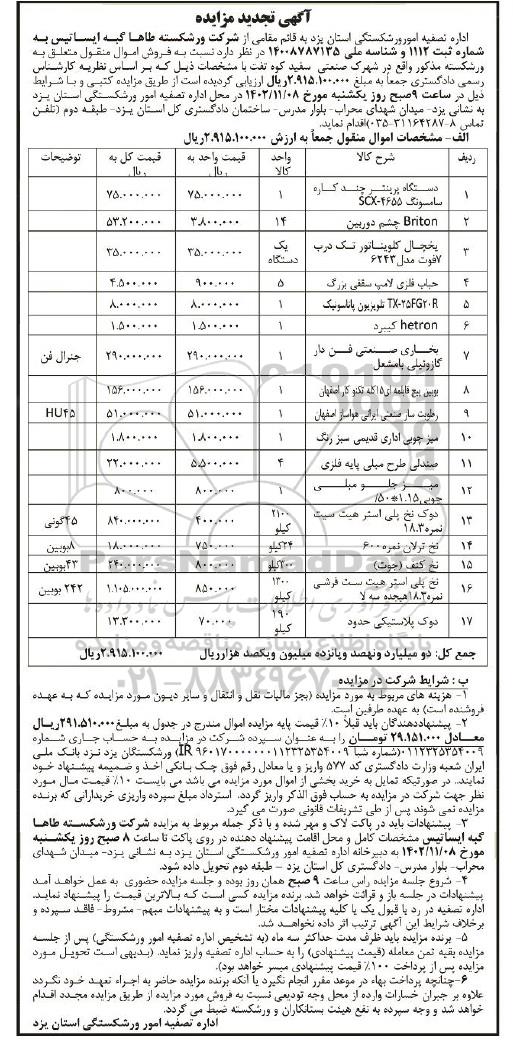 آگهی تجدید مزایده
اداره تصفیه امورورشکستگی استان یزد به قائم مقامی از شرکت ورشکسته طاهـا گبـه ایساتیس به
شماره ثبت ۱۱۱۲ و شناسه ملی ۱۴۰۰۸۷۸۷۱۳۵ در نظر دارد نسبت به فروش اموال منقول متعلق به
ورشکسته مذکور واقع در شهرک صنعتی سفید کوه تفت با مشخصات ذیـل کـه بـر اساس نظریـه کارشناس
رسمی دادگستری جمعاً به مبلغ ۲.۹۱۵.۱۰۰.۰۰۰ریال ارزیابی گردیده است از طریق مزایده کتبـی و بـا شرایط
ذیل در ساعت ۹صبح روز یکشنبه مورخ ۱۴۰۲/۱۱/۰۸ در محل اداره تصفیه امور ورشکستگی استان یـزد
به نشانی یزد- میدان شهدای محراب- بلوار مدرس- ساختمان دادگستری کل استان یزد- طبقه دوم (تلفن
تماس ۸-۰۳۵-۳۱۱۶۴۲۸۷)اقدام نماید.
الف- مشخصات اموال منقول جمعاً به ارزش ۲.۹۱۵.۱۰۰.۰۰۰ریال
ردیف شرح کالا واحد کالا قیمت واحد به ریال قیمت کل به ریال توضیحات
۱ دستگاه پرینتـر چنـد کـاره سامسونگ SCX-4655 ۱ ۷۵.۰۰۰.۰۰۰ ۷۵.۰۰۰.۰۰۰
۲ Briton چشم دوربین ۱۴ ۳.۸۰۰.۰۰۰ ۵۳.۲۰۰.۰۰۰
۳ یخچـال کلوینـاتور تـک درب ۷فوت مدل۶۲۴۳ یک دستگاه ۳۵.۰۰۰.۰۰۰ ۳۵.۰۰۰.۰۰۰
۴ حباب فلزی لامپ سقفی بزرگ ۵ ۹۰۰.۰۰۰ ۴.۵۰۰.۰۰۰
۵ TX-25FG20R تلویزیون پاناسونیک ۱ ۸.۰۰۰.۰۰۰ ۸.۰۰۰.۰۰۰
۶ hetron کیبرد ۱ ۱.۵۰۰.۰۰۰ ۱.۵۰۰.۰۰۰
۷ بخـاری صـنعتی فـن دار گازوئیلی بامشعل ۱ ۲۹۰.۰۰۰.۰۰۰ ۲۹۰.۰۰۰.۰۰۰ جنرال فن
۸ بوبین پیچ قابلمه ای۱۵کله تکنو کار اصفهان ۱ ۱۵۶.۰۰۰.۰۰۰ ۱۵۶.۰۰۰.۰۰۰
۹ رطوبت ساز صنعتی ایرانی هواساز اصفهان ۱ ۵۱.۰۰۰.۰۰۰ ۵۱.۰۰۰.۰۰۰ HU45
۱۰ میز چوبی اداری قدیمی سبز رنگ ۱ ۱.۸۰۰.۰۰۰ ۱.۸۰۰.۰۰۰
۱۱ صندلی طرح مبلی پایه فلزی ۴ ۵.۵۰۰.۰۰۰ ۲۲.۰۰۰.۰۰۰
۱۲ میـــز جلـــو مبلـــی چوبی۱.۱۵*۵۰/ ۱ ۸۰۰.۰۰۰ ۸۰۰.۰۰۰
۱۳ دوک نخ پلی استر هیت سیت نمره۱۸.۳ ۲۱۰۰ کیلو ۴۰۰.۰۰۰ ۸۴۰.۰۰۰.۰۰۰ ۴۵گونی
۱۴ نخ ترلان نمره۶۰۰ ۲۴کیلو ۷۵۰.۰۰۰ ۱۸.۰۰۰.۰۰۰ ۸بوبین
۱۵ نخ کنف (جوت) ۳۰۰کیلو ۸۰۰.۰۰۰ ۲۴۰.۰۰۰.۰۰۰ ۴۳بوبین
۱۶ نخ پلی استر هیت ست فرشی نمره۱۸.۳هیجده سه لا ۱۳۰۰ کیلو ۸۵۰.۰۰۰ ۱.۱۰۵.۰۰۰.۰۰۰ ۲۴۲ بوبین
۱۷ دوک پلاستیکی حدود ۱۹۰ کیلو ۷۰.۰۰۰ ۱۳.۳۰۰.۰۰۰
جمع کل: دو میلیارد ونهصد وپانزده میلیون ویکصد هزارریال ۲.۹۱۵.۱۰۰.۰۰۰ریال
ب : شرایط شرکت در مزایده
۱- هزینه های مربوط به مورد مزایده (بجز مالیات نقل و انتقال و سایر دیـون مـورد مزایـده کـه بـه عهـده
فروشنده است) به عهده طرفین است.
۲- پیشنهاددهندگان باید قبلاً ۱۰٪ قیمت پایه مزایده اموال مندرج در جدول به مبلـغ۲۹۱.۵۱۰.۰۰۰ریـال
معـادل ۲۹.۱۵۱.۰۰۰ تومـان را بـه عنـوان سـپرده شـرکت در مزایـده بـه حساب جـاری شـماره
۰۱۱۲۳۲۵۳۵۴۰۰۹(شماره شبا IR ۹۶۰۱۷۰۰۰۰۰۰۰۱۱۲۳۲۵۳۵۴۰۰۹) ورشکستگان یزد نـزد بانـک ملـی
ایران شعبه وزارت دادگستری کد ۵۷۷ واریز و یا معادل رقم فوق چـک بـانکی اخـذ و ضـمیمه پیشـنهاد خـود
نمایند.. در صورتیکه تمایل به خرید بخشی از اموال مورد مزایده می باشد می بایست ۱۰٪ قیمـت مـال مـورد
نظر جهت شرکت در مزایده به حساب فوق الذکر واریز گردد. استرداد مبلغ سپرده واریزی خریدارانی که برنده
مزایده نمی شوند پس از طی تشریفات قانونی صورت می گیرد.
۳- پیشنهادات باید در پاکت لاک و مهر شده و با ذکر جمله مربوط به مزایده شرکت ورشکسته طاهـا
گبه ایساتیس مشخصات کامل و محل اقامت پیشنهاد دهنده در روی پاکت تا ساعت ۸ صبح روز یکشنبه
مورخ ۱۴۰۲/۱۱/۰۸ به دبیرخانه اداره تصفیه امور ورشکستگی استان یـزد بـه نشـانی یـزد- میـدان شـهدای
محراب- بلوار مدرس- دادگستری کل استان یزد – طبقه دوم تحویل داده شود.
۴- شروع جلسه مزایده راس ساعت ۹ صبح همان روز بوده و جلسه مزایده حضوری به عمل خواهـد آمـد
پیشنهادات در جلسه باز و قرائت خواهد شد. برنده مزایده کسی است که بـالاترین قیمـت را پیشنهاد نمایـد.
اداره تصفیه در رد یا قبول یک یا کلیه پیشنهادات مختار است و به پیشنهادات مبهم- مشروط- فاقـد سـپرده و
برخلاف شرایط این آگهی ترتیب اثر داده نخواهـد شد.
۵- برنده مزایده باید ظرف مدت حداکثر سه ماه (به تشخیص اداره تصفیه امور ورشکستگی) پس از جلسه
مزایده بقیه ثمن معامله (قیمت پیشنهادی) را به حساب اداره تصفیه واریز نماید. (بدیهی است تحویـل مـورد
مزایده پس از پرداخت ۱۰۰٪ قیمت پیشنهادی میسر خواهد بود).
۶-چنانچه پرداخت بهاء در موعد مقرر انجام نگیرد یا آنکه برنده مزایده حاضر به اجـراء تعهـد خـود نگـردد
علاوه بر جبران خسارات وارده از محل وجه تودیعی نسبت به فروش مورد مزایده از طریق مزایده مجـدد اقـدام
خواهد شد و وجه سپرده به نفع هیئت بستانکاران و ورشکسته ضبط می گردد.
اداره تصفیه امور ورشکستگی استان یزد